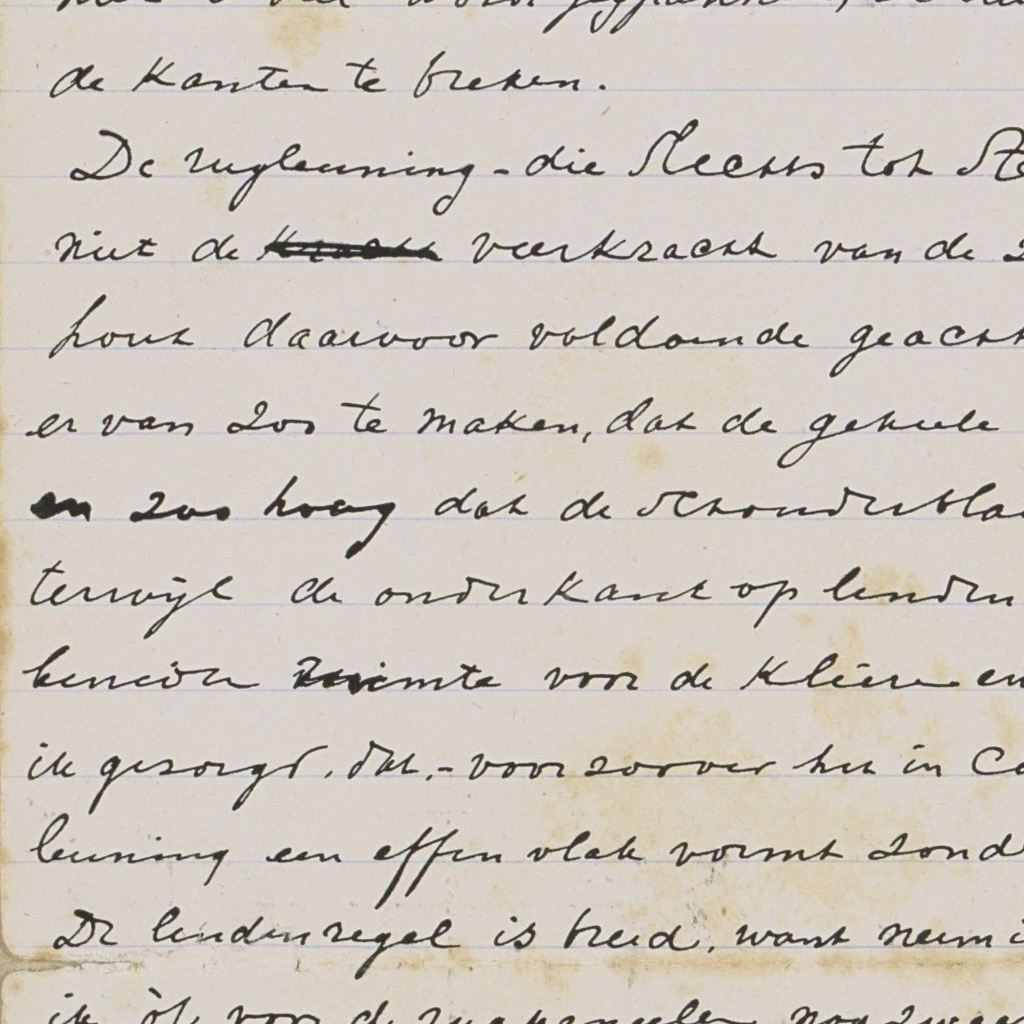 de kanten te breken.
De rugleuning - die slechts tot
niet de veerkracht van de
hout daarvoor voldoende geacht
er van zoo te maken, dat de geheele
en zoo hoog dat de schouderbla
terwijl de onderkant op lenden
beneden ruimte voor de kleeren en
ik gezorgd, dat, - voorzoover het in Co
leuning een effen vlak vormt zond
De lendenregel is breed, want neem i
ik óf voor de